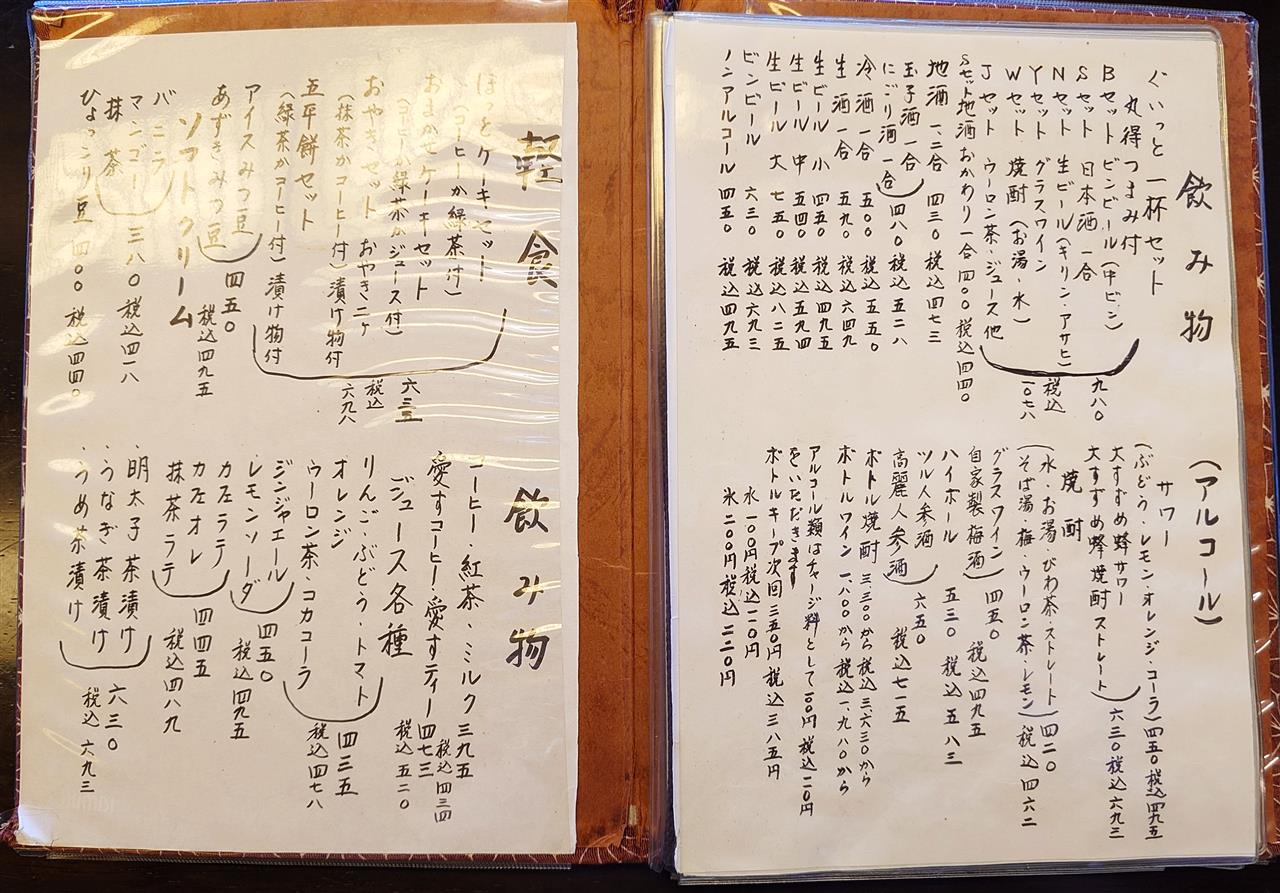 飲み物
(アルコール)
ぐいっと一杯セット
丸得つまみ付
Bセット ビンビール(中ビン)
Sセット 日本酒一合
Nセット 生ビール(キリン・アサヒ)
Yセット グラスワイン
Wセット 焼酎(お湯・水)
Jセット ウーロン茶・ジュース他
九八〇
税込
一〇七八
Sセット地酒おかわり一合四〇〇税込四四〇
地酒 一、二合 四三〇 税込四七三
玉子酒一合
にごり酒一合
四八〇 税込五二八
冷酒一合 五〇〇 税込五五〇
生酒一合 五九〇 税込六四九
生ビール 小 四五〇 税込四九五
生ビール 中 五四〇 税込五九四
生ビール 大 七五〇 税込八二五
ビンビール 六三〇 税込六九三
ノンアルコール 四五〇 税込四九五
サワー
(ぶどう・レモン・オレンジ・コーラ)四五〇税込四九五
大すずめ蜂サワー
大すずめ蜂焼酎ストレート
六三〇税込六九三
焼酎
(水・お湯・びわ茶・ストレート)
(そば湯・梅・ウーロン茶・レモン)
四二〇
税込四六二
グラスワイン
自家製梅酒
四五〇 税込四九五
ハイボール 五三〇 税込五八三
ツル人参酒
高麗人参酒
六五〇 税込七一五
ボトル焼酎 三、三〇〇から 税込三、六三〇から
ボトルワイン 一、八〇〇から 税込一、九八〇から
アルコール類はチャージ料として一〇〇円税込一一〇円
をいただきます
ボトルキープ次回三五〇円税込三八五円
水一〇〇円税込一一〇円
氷二〇〇円税込二二〇円
軽食
ほっとケーキセット
(コーヒーか緑茶付)
おまかせケーキセット
(コーヒーか緑茶かジュース付)
おやきセット おやき二ヶ
(抹茶かコーヒー付)漬け物付
五平餅セット
(緑茶かコーヒー付)漬け物付
六三五
税込
六九八
アイスみつ豆
あずきみつ豆
四五〇
税込四九五
ソフトクリーム
バニラ
マンゴー
抹茶
三八〇 税込四一八
ひょっこり豆 四〇〇 税込四四〇
飲み物
コーヒー・紅茶・ミルク 三九五
税込四三四
愛すコーヒー・愛すティー 四七三
税込五二〇
ジュース各種
りんご・ぶどう・トマト
オレンジ
ウーロン茶・コカコーラ
四三五
税込四七八
ジンジャエール
レモンソーダ
四五〇
税込四九五
カフェラテ
カフェオレ
抹茶ラテ
四四五
税込四八九
・明太子茶漬け
・うなぎ茶漬け
・うめ茶漬け
六三〇
税込六九三